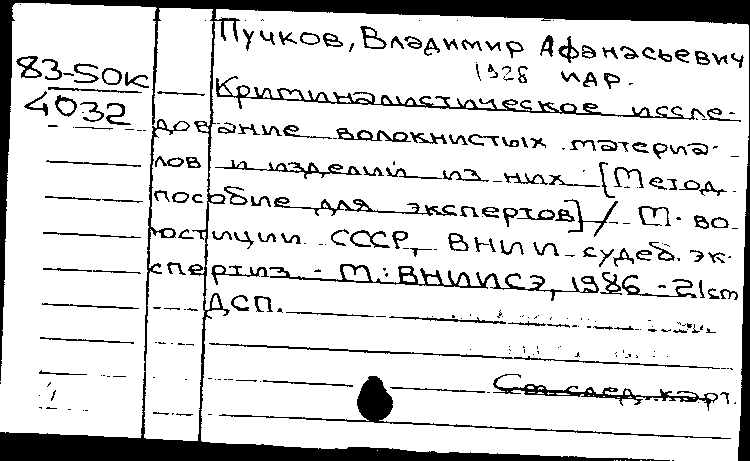 Пучков, Владимир Афанасьевич
83-SOK
4032
1928 ИДР.
Криминалистическое иссле-
дование волокнистых материа-
лов и изделий из них [Метод.
пособие для экспертов] / М. во
юстиции СССР, ВНИИ судеб. эк-
спертиз - М.: ВНИИСЭ, 1986 - 21cm
ДСП.
См. след. карт.